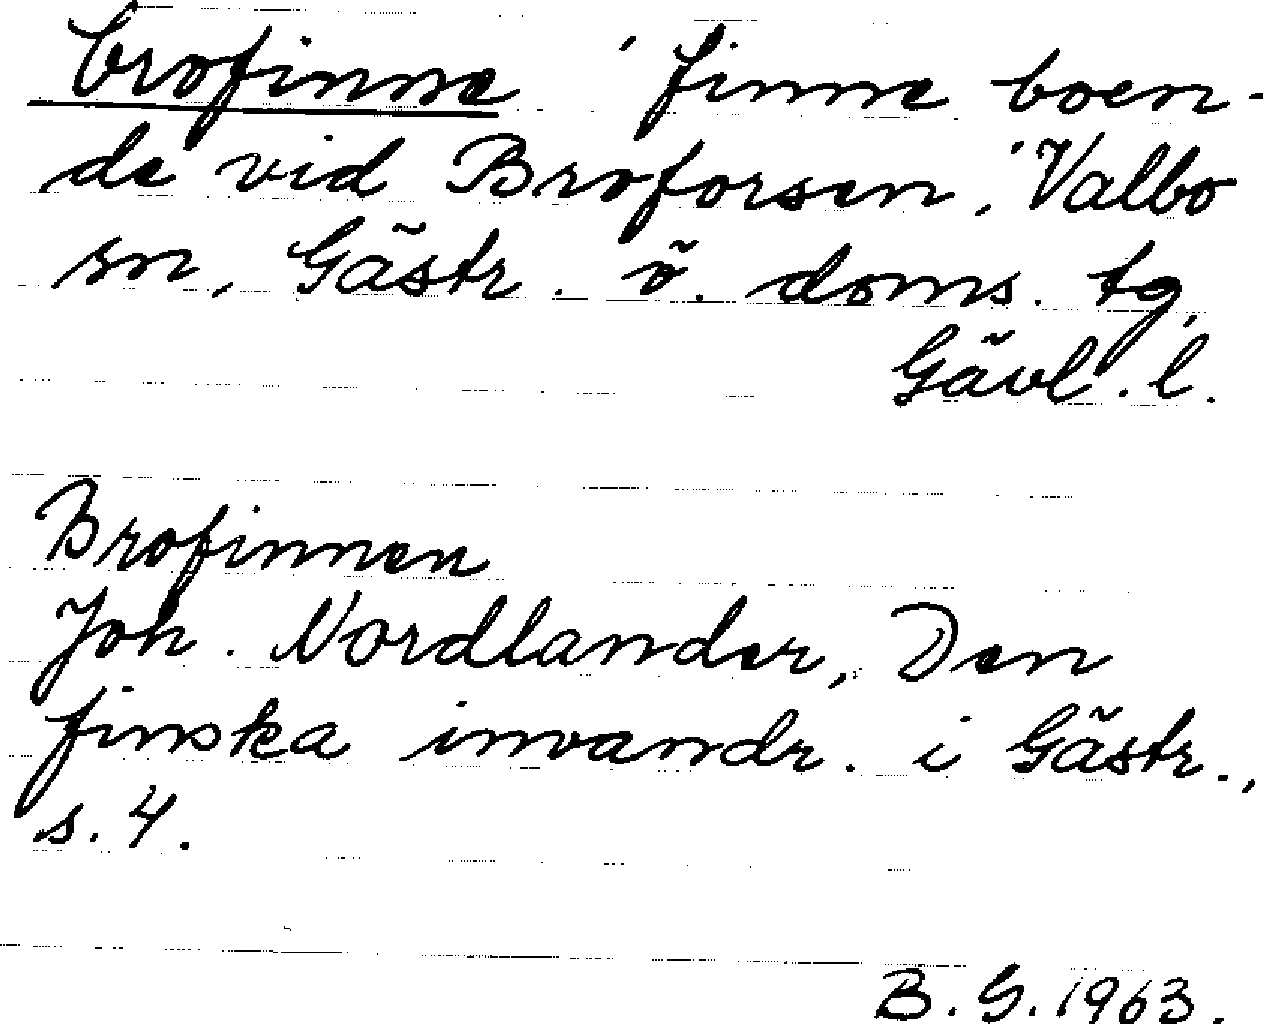 brofinne 'finne boen-
de vid Broforsen,' Valbo
sn, Gästr. ö. doms. tg,
Gävl. l.
Brofinnen
Joh. Nordlander, Den
finska invandr. i Gästr.,
s. 4.
B. G. 1963.